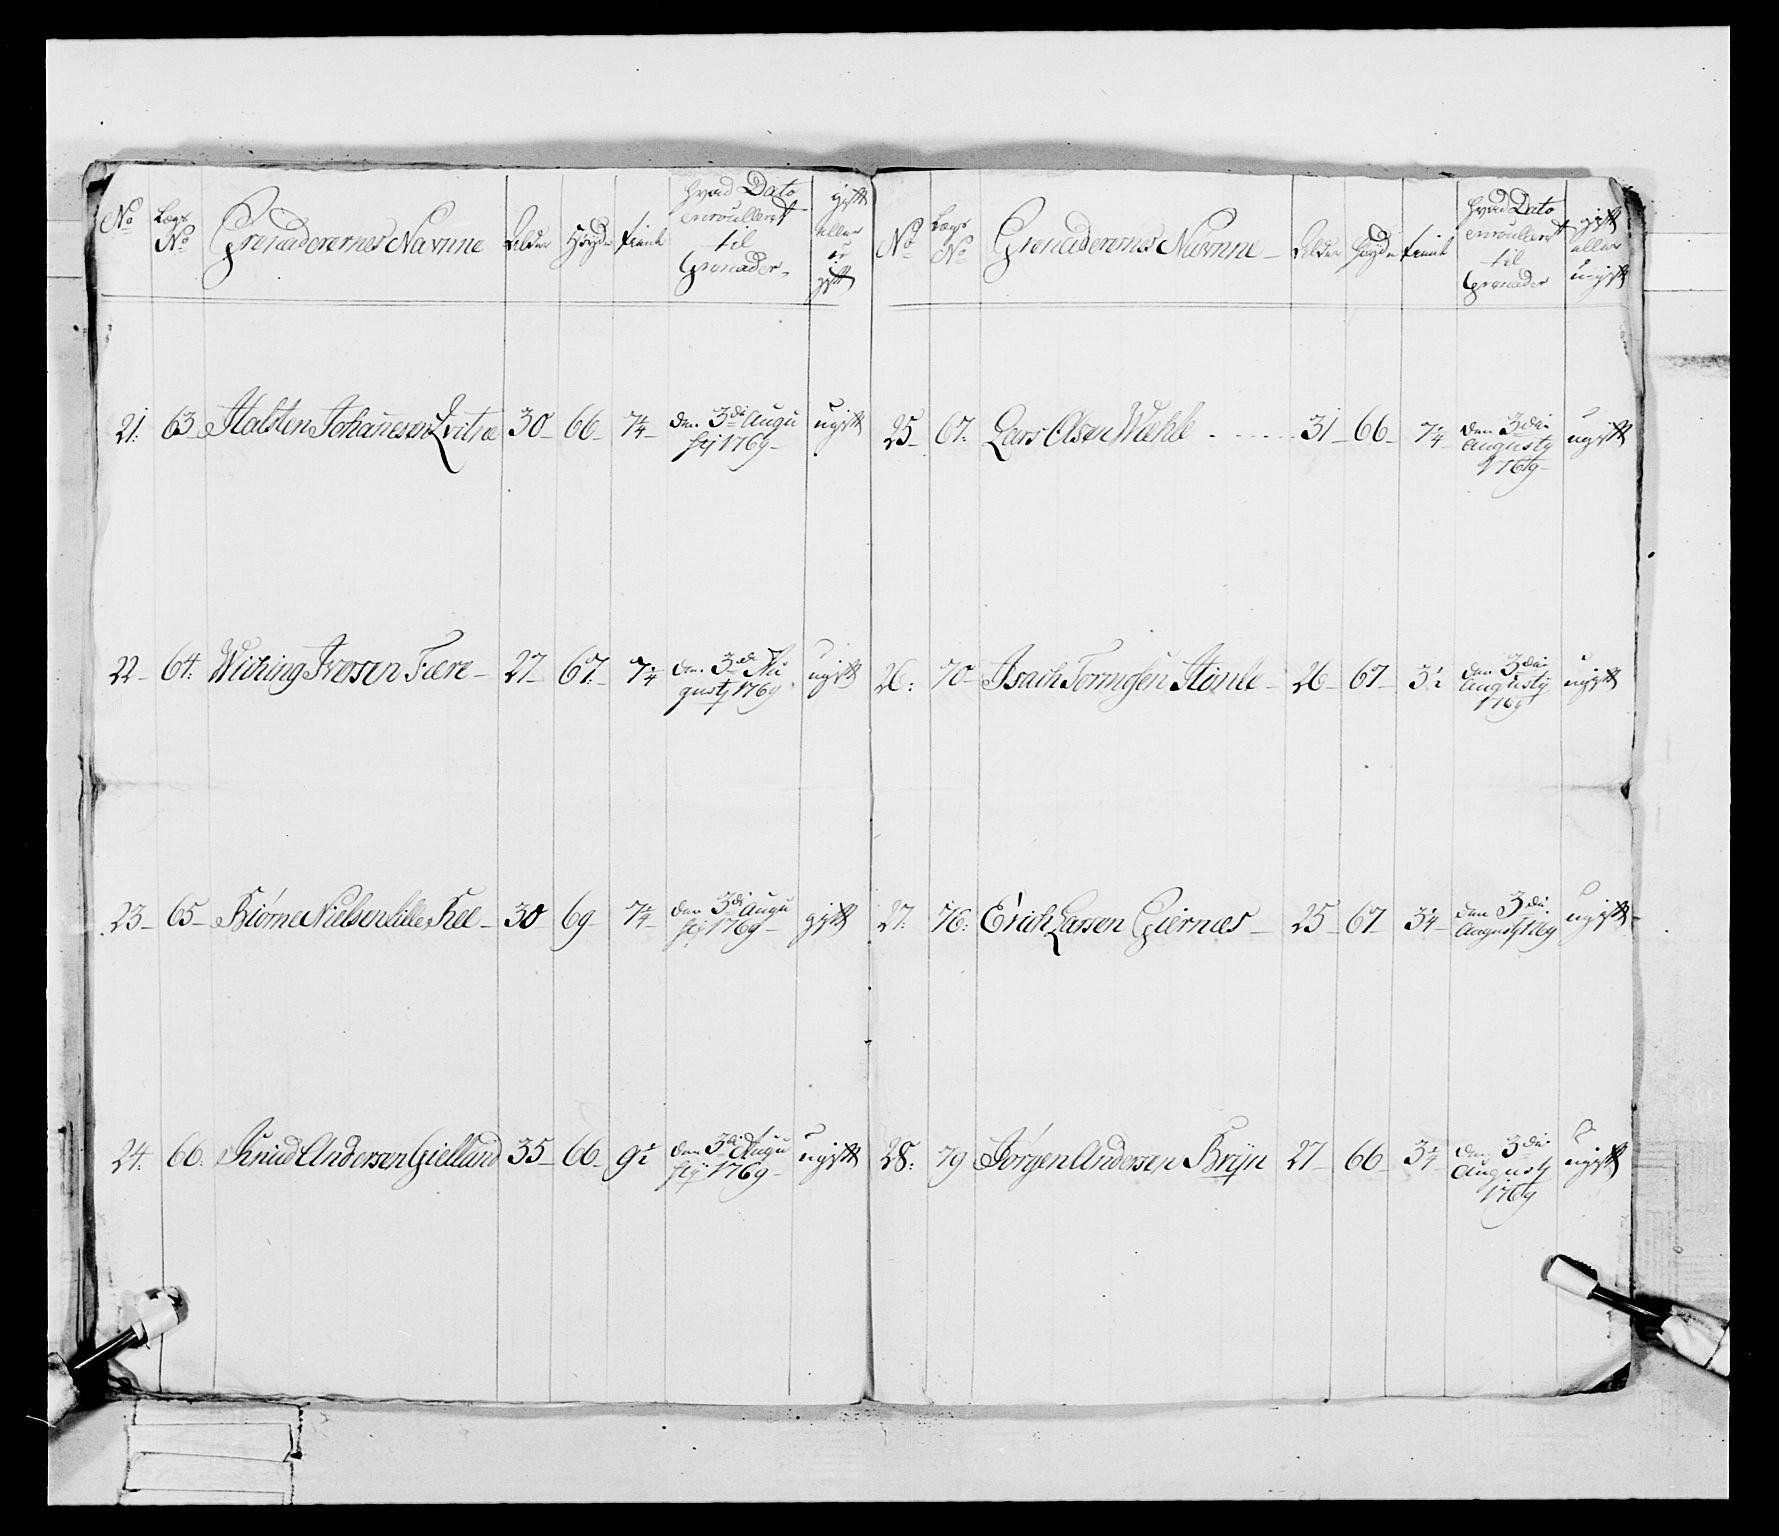 No Lægs No Grenaderernes Navnne Alder Høyde tient hvad Dato enroulleret til Grenader gift eller ugift
21. 63 Halsten Johannesen Qvitne 30 66 7¼ den 3di Augustij 1769 ugift
22 64. Wiching Iversen Fære 27 67. 7¼ den 3di Augustj 1769 ugift
23 65 Biørne Nielsen lille Ree 30 69 7¼ den 3di Augustij 1769 gift
24. 66. Knud Andersen Gielland 35 66 9½ den 3di Augustij 1769 ugift
No Lægs No Grenaderernes Navnne Alder Høyde tient hvad Dato enroulleret til Grenader gift eller ugift
25 67. Lars Olsen Wæhle 31 66 7¼ den 3die Augusty 1769 ugift
26. 70 Isach Torringsen 26 67 3½ den 3die Augustij 1769 ugift
27. 76. Erich Larsen Giernæs 25 67 3¼ den 3die Augustj 1769 ugift
28. 79 Jørgen Andersen Bryn 27 66 3¼ den 3die Augustj 1769 ugift